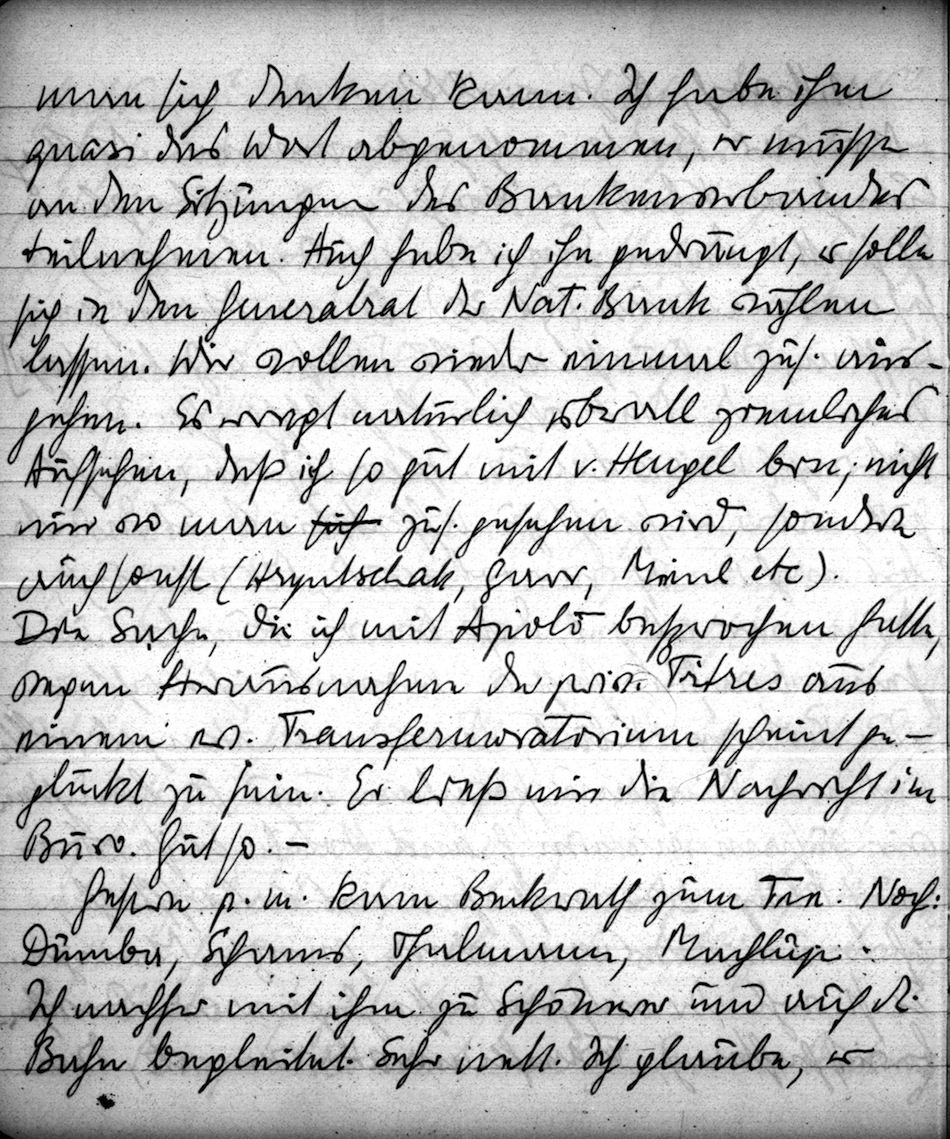 man sich denken kann. Ich habe ihm
quasi das Wort abgenommen, er müsse
an den Sitzungen des Bankenverbandes
teilnehmen. Auch habe ich ihn gedrängt, er solle
sich in den Generalrat der Nat. Bank wählen
lassen. Wir wollen wieder einmal zus. aus-
gehen. Es erregt natürlich überall ziemliches
Aufsehen, daß ich so gut mit v. Hengel bin; nicht
nur wo man sich zus. gesehen wird, sondern
auch sonst (Hryntschak, Garr, Meinl etc).
Die Sache, die ich mit Apolo besprochen hatte,
wegen Herausnahme der priv. Titres aus
einem ev. Transfermoratorium scheint ge-
glückt zu sein. Er ließ mir die Nachricht im
Büro. Gut so. –
Gestern p. m. kam Beckerath zum Tee. Noch:
Dumba, Schams, Thalmann, Machlup.
Ich nachher mit ihm zu Schöner und auch z.
Bahn begleitet. Sehr nett. Ich glaube, er